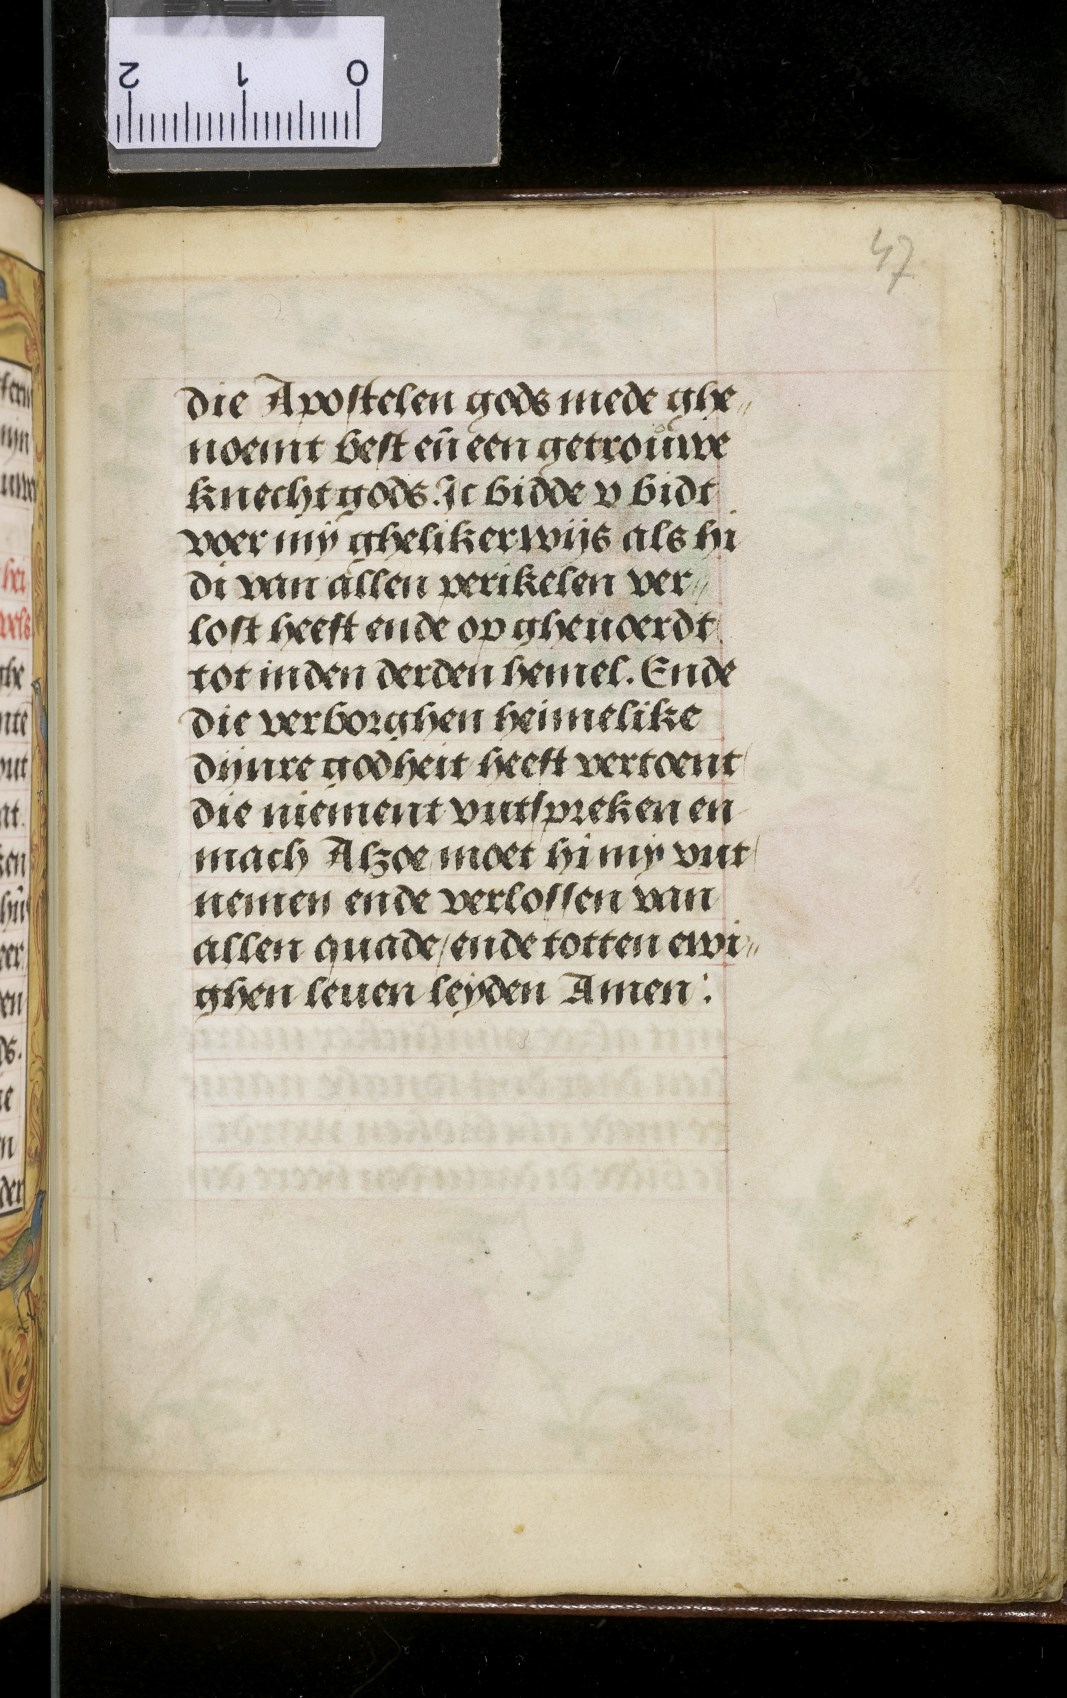 47
die Apostelen gods mede ghe〃
noemt best en̄ een getrouwe
knecht gods. Ic bidde v bidt
voer mÿ ghelikerwijs als hi
di van allen perikelen ver〃
lost heeft ende op gheuoerdt
tot inden derden hemel. Ende
die verborghen heimelike
dijnre godheit heeft vertoent
die niement vutspreken en
mach Alzoe moet hi mÿ vut
nemen ende verlossen van
allen quade/ ende totten ewi〃
ghen leuen leÿden Amen :
2 1 0